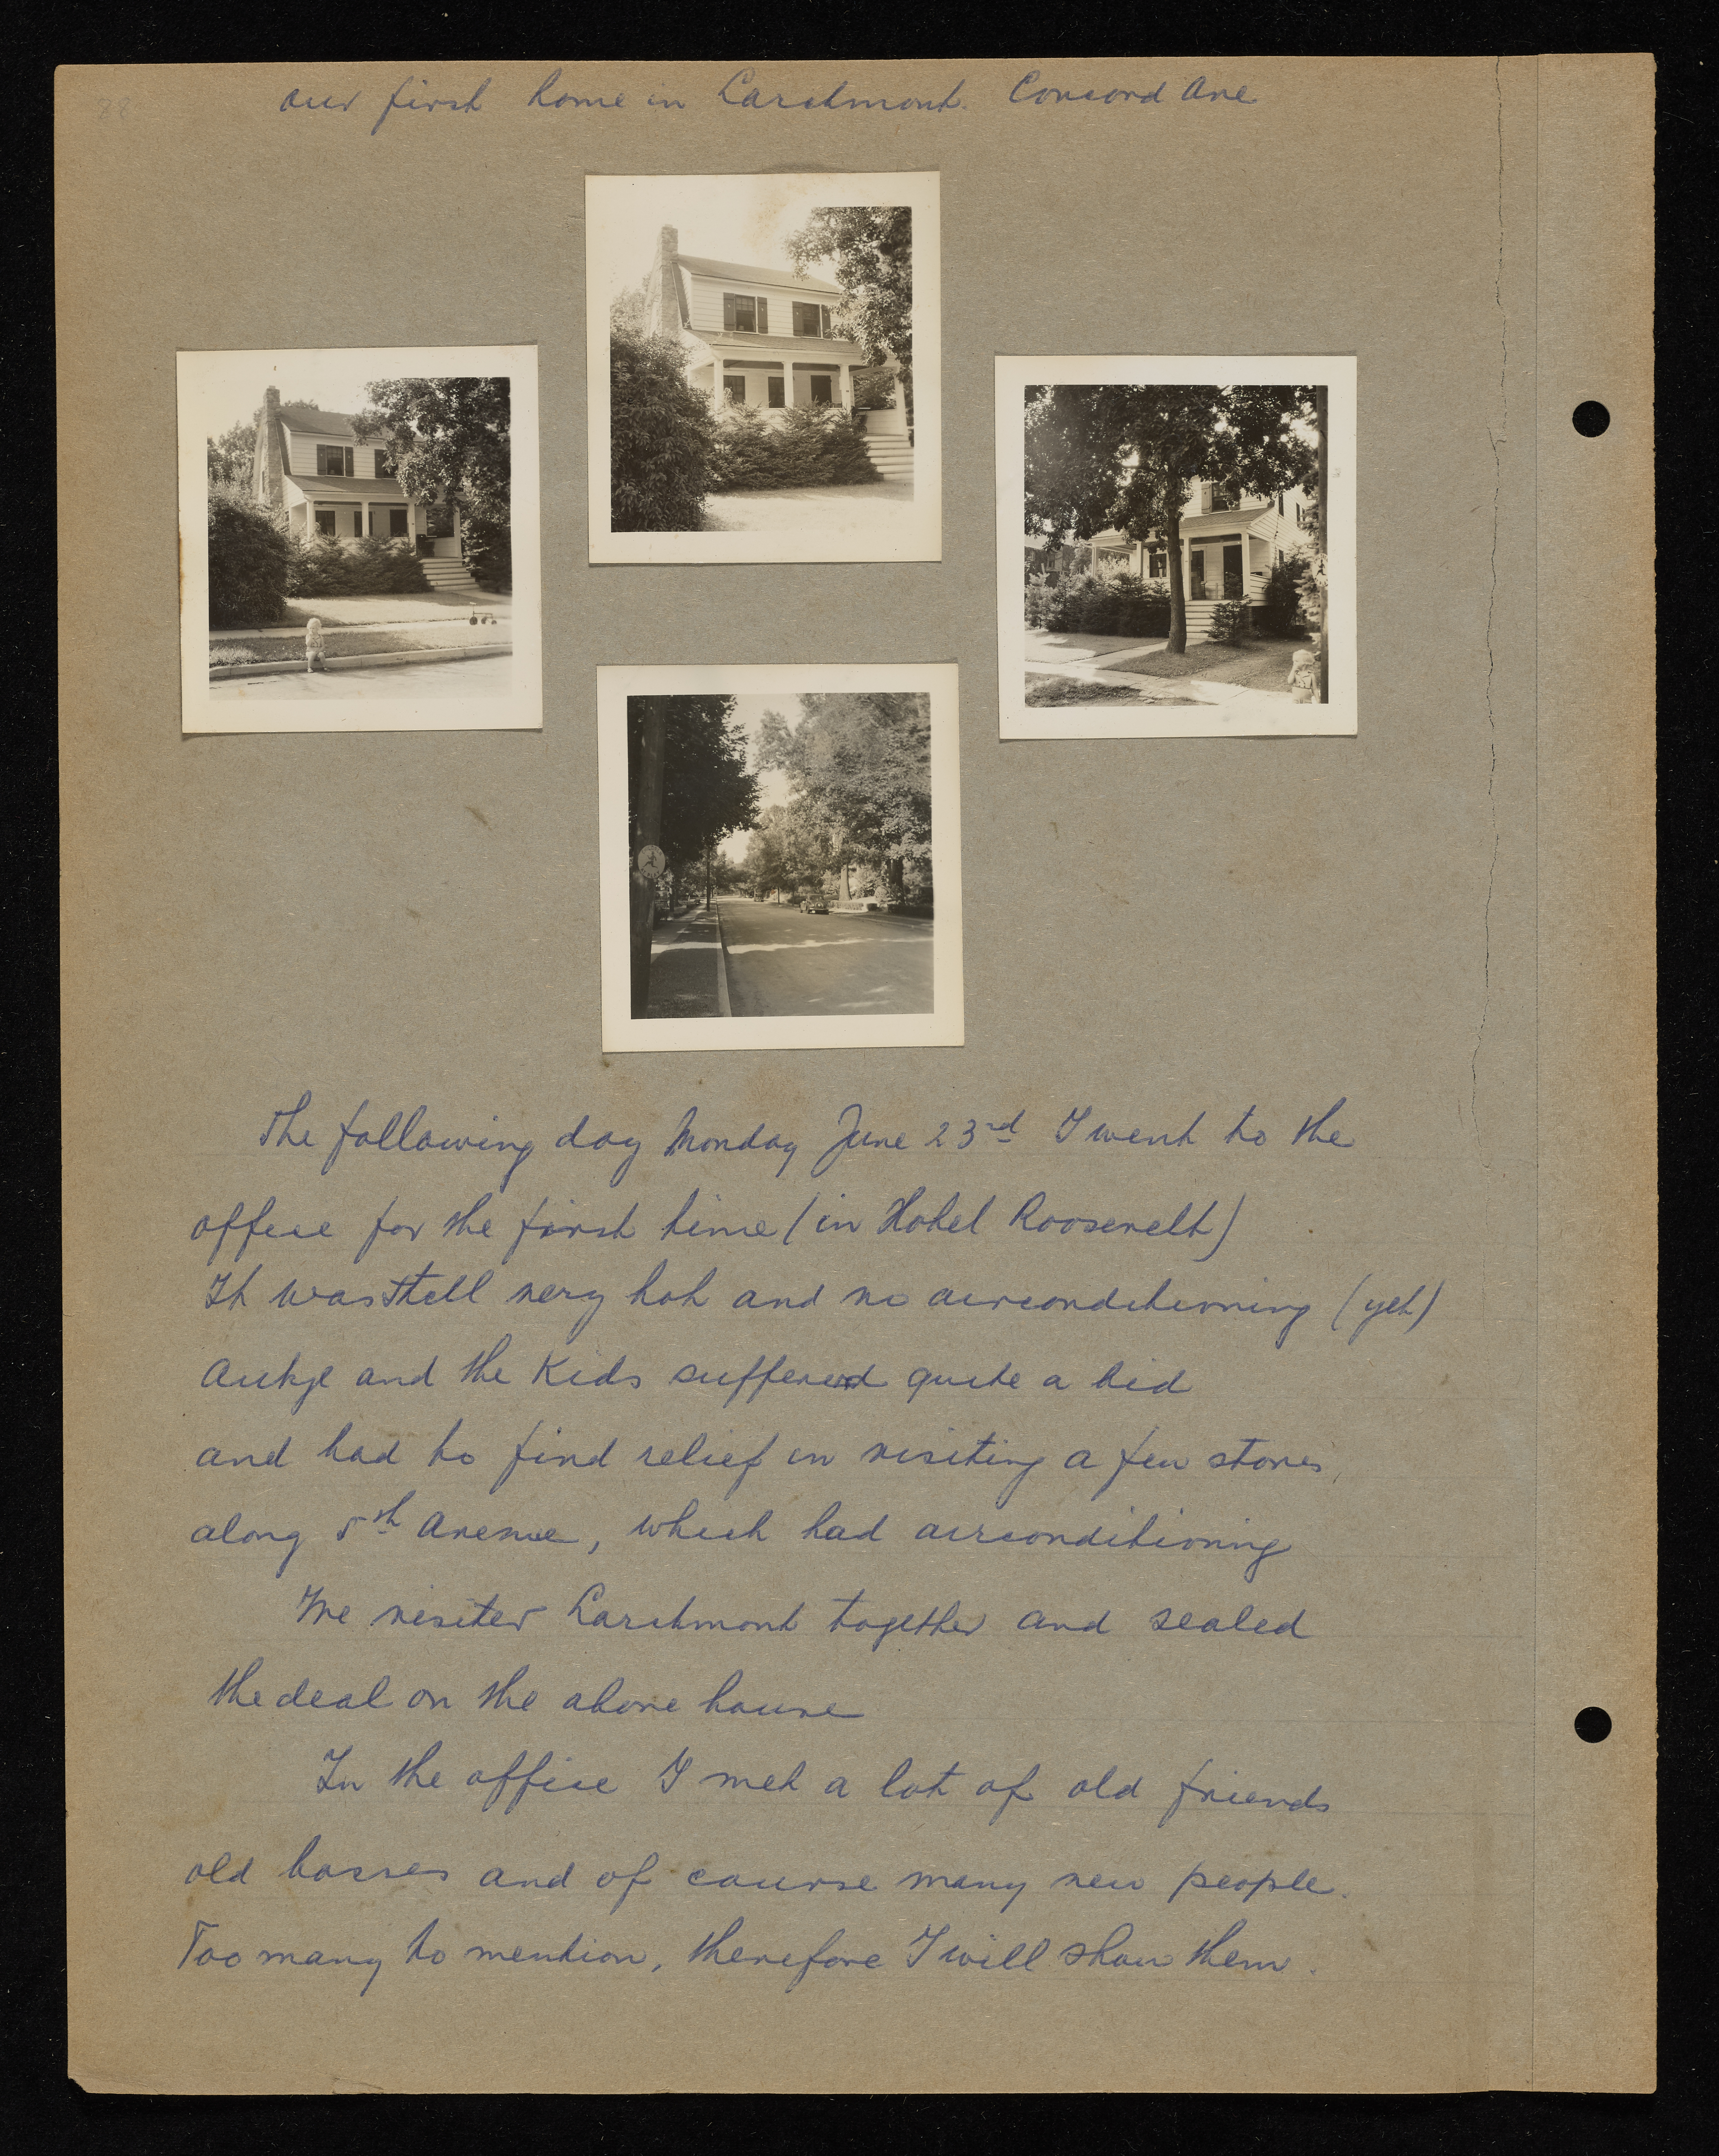 our first home in Larchmont. Concord Ave
The following day Monday June 23rd I went to the
office for the first time (in Hotel Roosevelt)
It was still very hot and no airconditioning (yet)
Aukje and the Kids suffered quite a bid
and had to find relief in visiting a few stores,
along 5th Avenue, which had airconditioning
We visited Larchmont together and sealed
the deal on the above house
In the office I met a lot of old friends
old bosses and of course many new people.
Too many to mention, therefore I will show them.